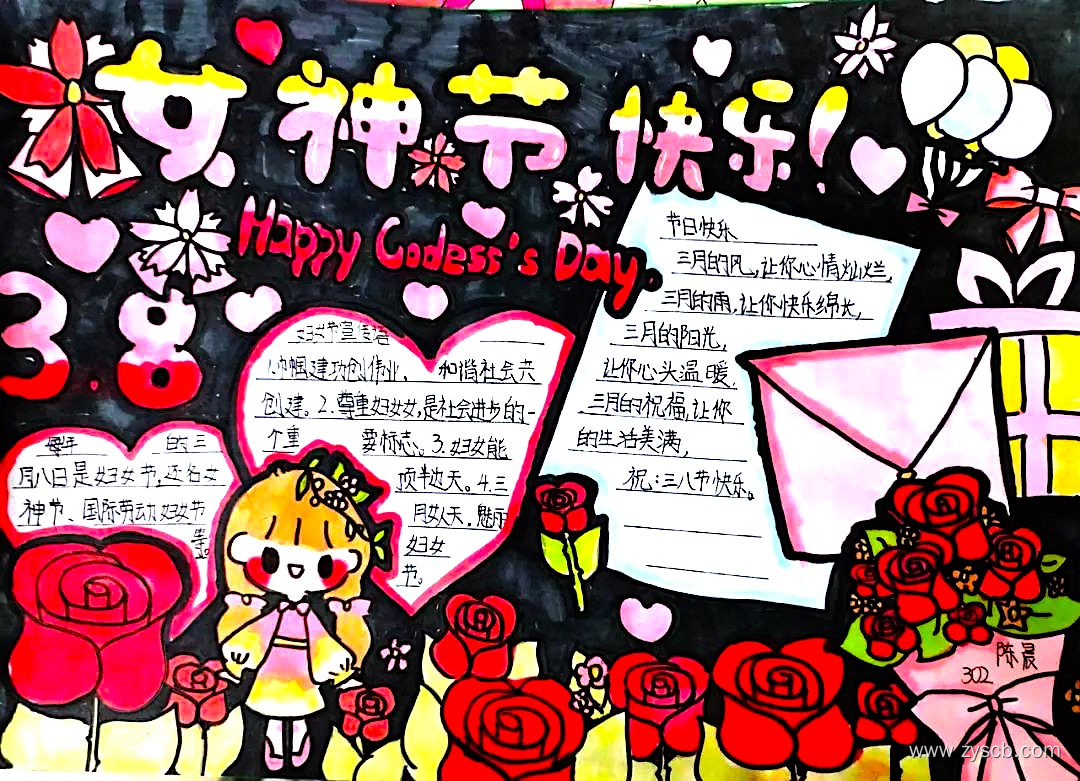 女神节快乐!
Happy Godess's Day.
3.8
节日快乐
三月的风,让你心情灿烂,
三月的雨,让你快乐绵长,
三月的阳光,
让你心头温暖,
三月的祝福,让你
的生活美满,
祝:三八节快乐。
妇女节宣传语
巾帼建功创伟业, 和谐社会共
创建。2.尊重妇女女,是社会进步的一
个重 要标志。3.妇女能
顶半边天。4.三
月女人天,魅示
妇女
节。
每年 的三
月八日是妇女节,还名女
神节、国际劳动妇女节
陈晨
302
www.zyscb.com